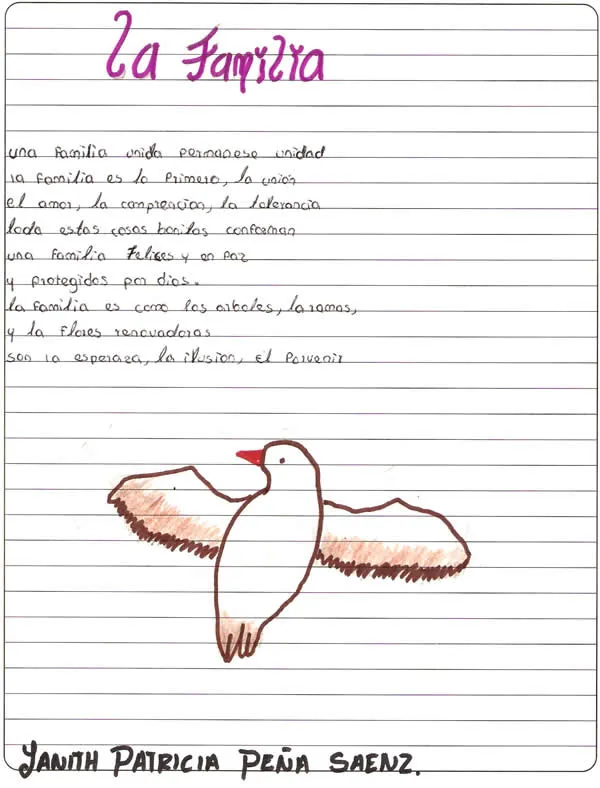 La Familia
una familia unida permanese unidad
la familia es lo primero, la union
el amor, la comprencion, la tolerancia
toda estas cosas bonitas conforman
una familia Felices y en paz
y protegidos por dios.
la familia es como los arboles, la ramas,
y la flores renovadoras
son la esperaza, la ilusion, el porvenir
YANITH PATRICIA PEÑA SAENZ.